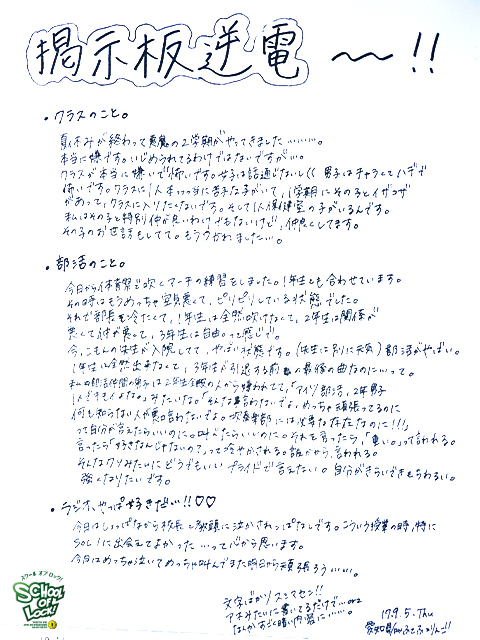 掲示板逆電 〜!!
・クラスのこと。
夏休みが終わって悪魔の2学期がやってきました………。
本当に嫌です。いじめられてるわけではないですが…。
クラスが本当に嫌いで怖いです。女子は話通じないし(( 男子はチャラくてハデで
怖いです。クラスに1人本っっ当に苦手な子がいて、1学期にその子とイザコザ
があって、クラスに入りたくないです。そして1人保健室の子がいるんです。
私はその子と特別仲が良いわけでもないけど、仲良くしてます。
その子のお世話もしてて。もうつかれました…。
・部活のこと。
今日から体育祭で吹くマーチの練習をしました。1年生とも合わせています。
その時はもうめっちゃ空気悪くて、ピリピリしている状態でした。
それで部長も冷たくて、1年生は全然吹けなくて、2年生は関係が
悪くて仲が悪くて、3年生は自由って感じで。
今、こもんの先生が入院してて、やばい状態です。(先生は別に元気)部活がやばい。
1年生は全然出来なくて、3年生が引退する前の最後の曲なのに…って。
私の部活仲間の男子は2年生全般の人から嫌われてて、「アイツ部活、2年男子
1人でキモイよな。」みたいな。「そんな事言わないでよ、めっちゃ頑張ってるのに
何も知らない人が悪口言わないでよ。吹奏楽部には必要な存在なのに!!!」
って自分が言えたらいいのに。叫べたらいいのに。それを言ったら、「重い。」って言われる。
言ったら「好きなんじゃないの?」って冷やかされる。誰かから、言われる。
そんなクソみたいにどうでもいいプライドで言えない自分がきらいできもちわるい。
強くなりたいです。
・ラジオ、やっぱ好きだい!!♡♡
今日はしょっぱなから校長と教頭に泣かされっぱなしです。こういう授業の時、特に
SOL!に出会えてよかった…って心から思います。
今日はめっちゃ泣いてめっちゃ叫んでまた明日から頑張ろう……。
文字ばかりスミマセン!!
アネみたいに書いてるだけで…orz
なんかすごく暗い内容に……。
17.9.5.Thu
スクール オブ ロック!
SCHOOL OF LOCK!